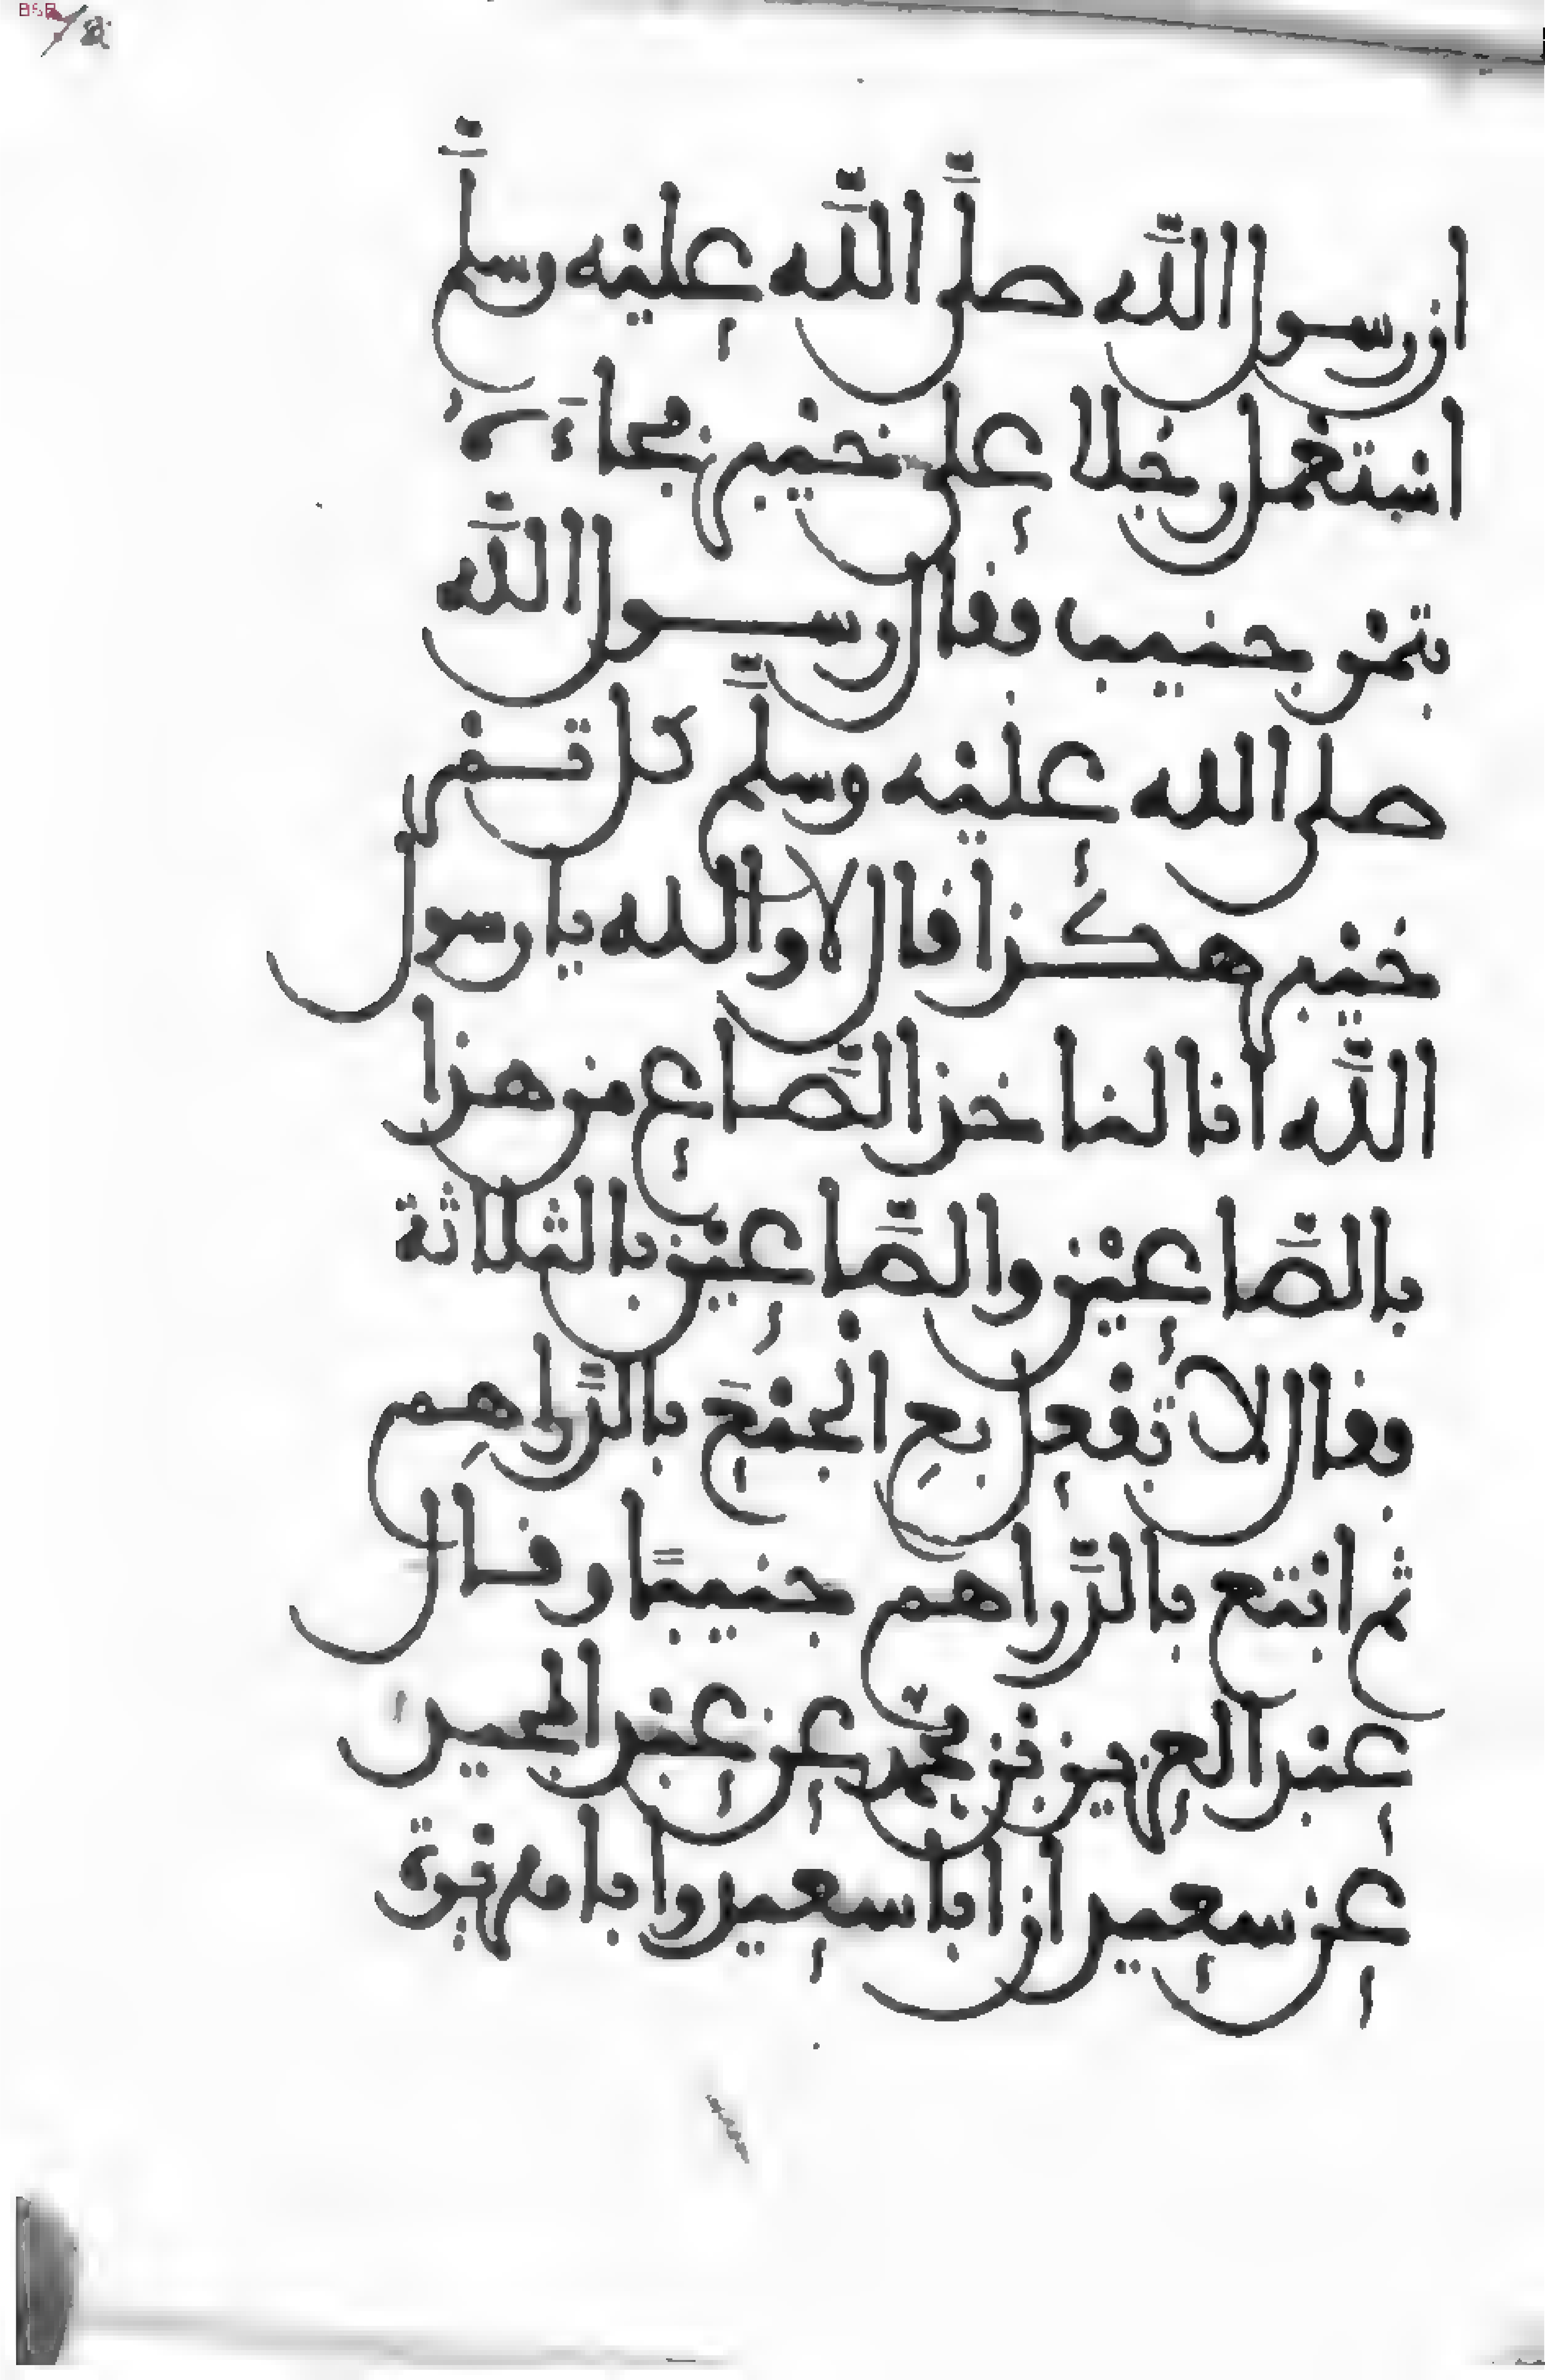 ان رسول الله صلى الله عليه وسلم
استعمل رجلا على خيبر فجاءه
بتمر جنيب فقال رسول الله
صلى الله عليه وسلم كل تمر
خيبر هكذا قال لا والله يا رسول
الله انا لناخذ الصَّاع من هذا
بالصَّاعيْن والصَّاعيْن بالثلاثة
فقال لا تفعل بعِ الجمْعَ بالدَّراهِم
ثم ابتع بالدَّراهم جنيبًا وقال
عبد العزيز بن محمّد عن عبد المجيد
عن سعيد ان ابا سعيد وابا هريرة